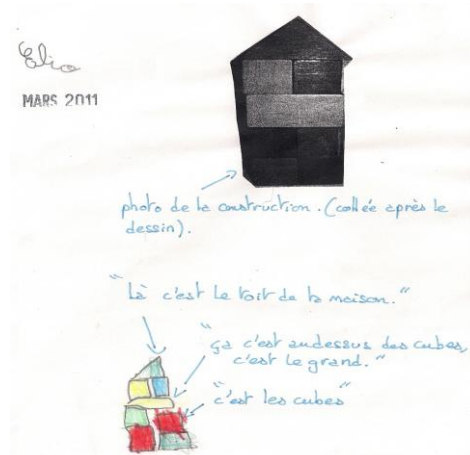 Elio
MARS 2011
photo de la construction. (collée après le
dessin).
"là c'est le toit de la maison."
"ça c'est audessus des cubes,
c'est le grand."
"c'est les cubes"